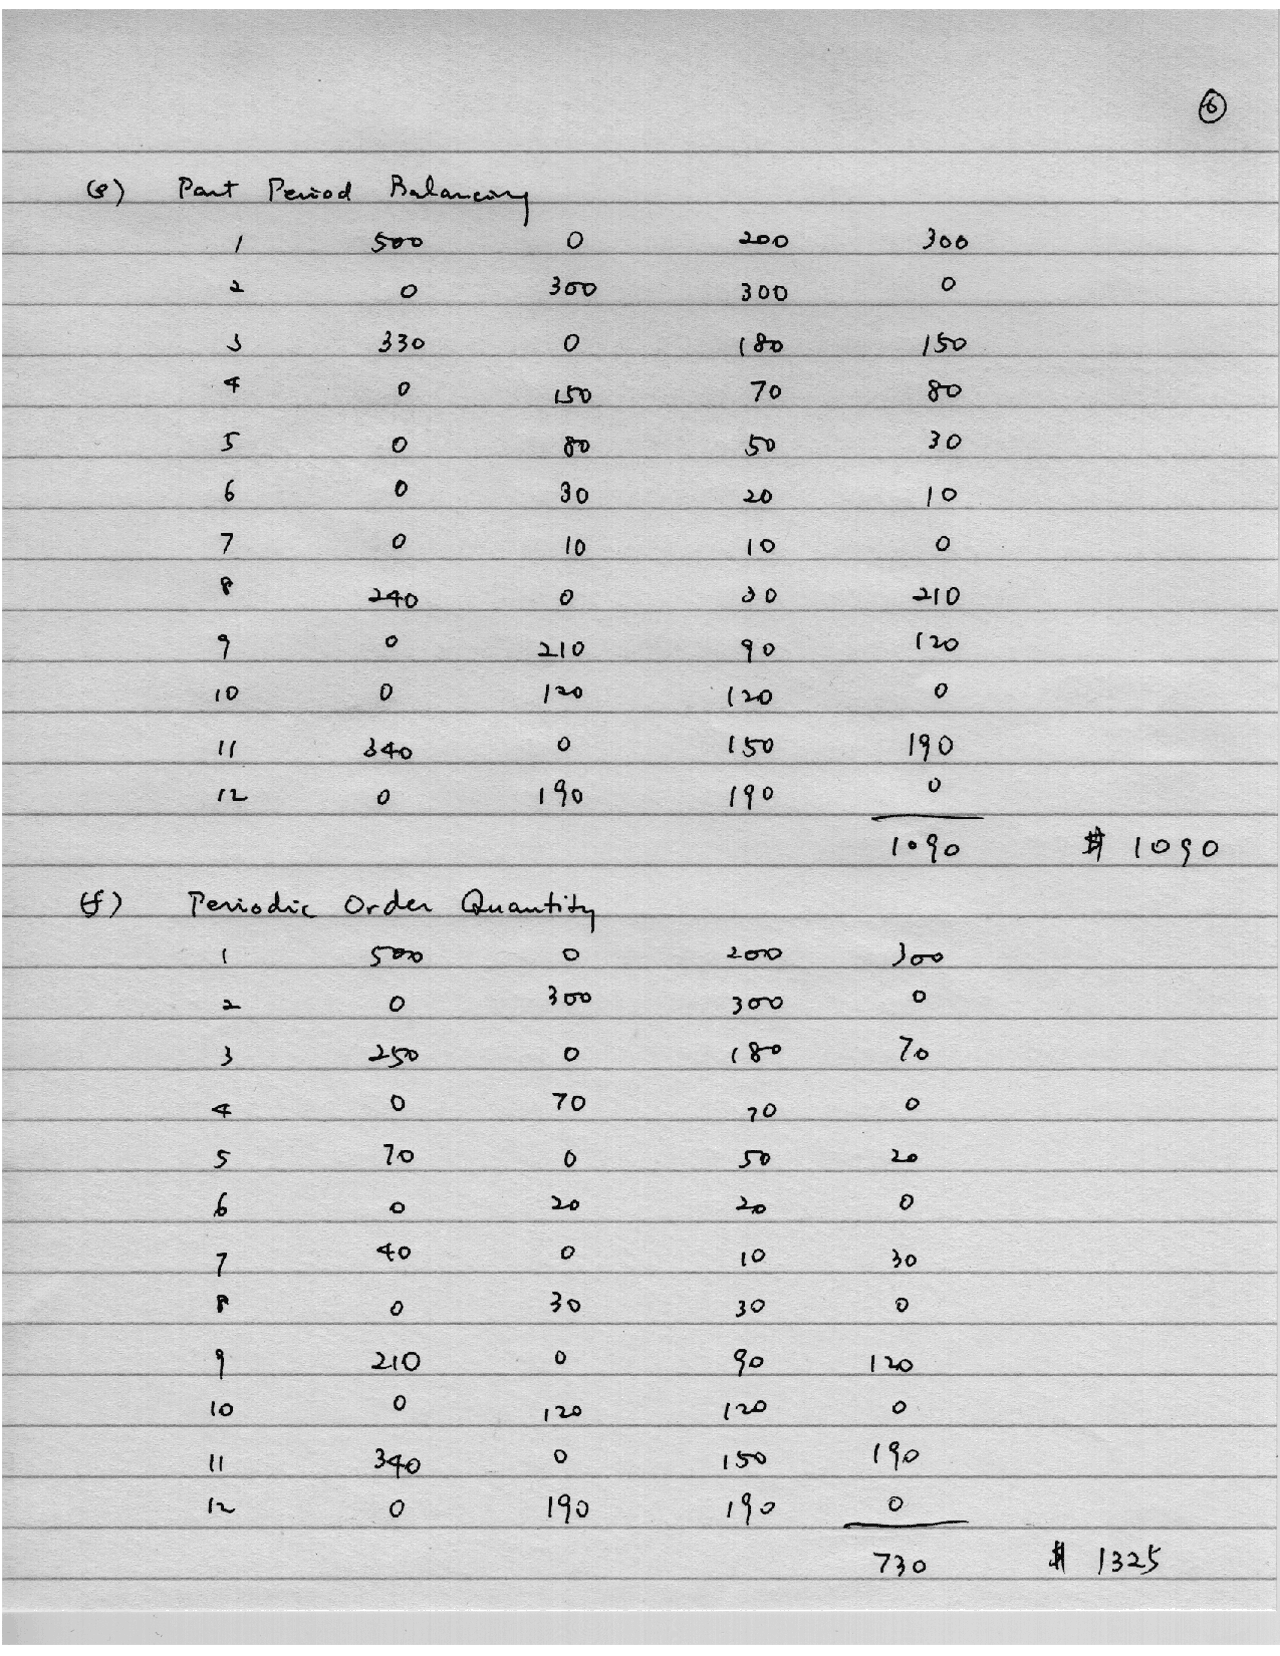 6
(e) Part Period Balancing
1 500 0 200 300
2 0 300 300 0
3 330 0 180 150
4 0 150 70 80
5 0 80 50 30
6 0 30 20 10
7 0 10 10 0
8 240 0 30 210
9 0 210 90 120
10 0 120 120 0
11 340 0 150 190
12 0 190 190 0
1090 $ 1090
(f) Periodic Order Quantity
1 500 0 200 300
2 0 300 300 0
3 250 0 180 70
4 0 70 70 0
5 70 0 50 20
6 0 20 20 0
7 40 0 10 30
8 0 30 30 0
9 210 0 90 120
10 0 120 120 0
11 340 0 150 190
12 0 190 190 0
730 $ 1325